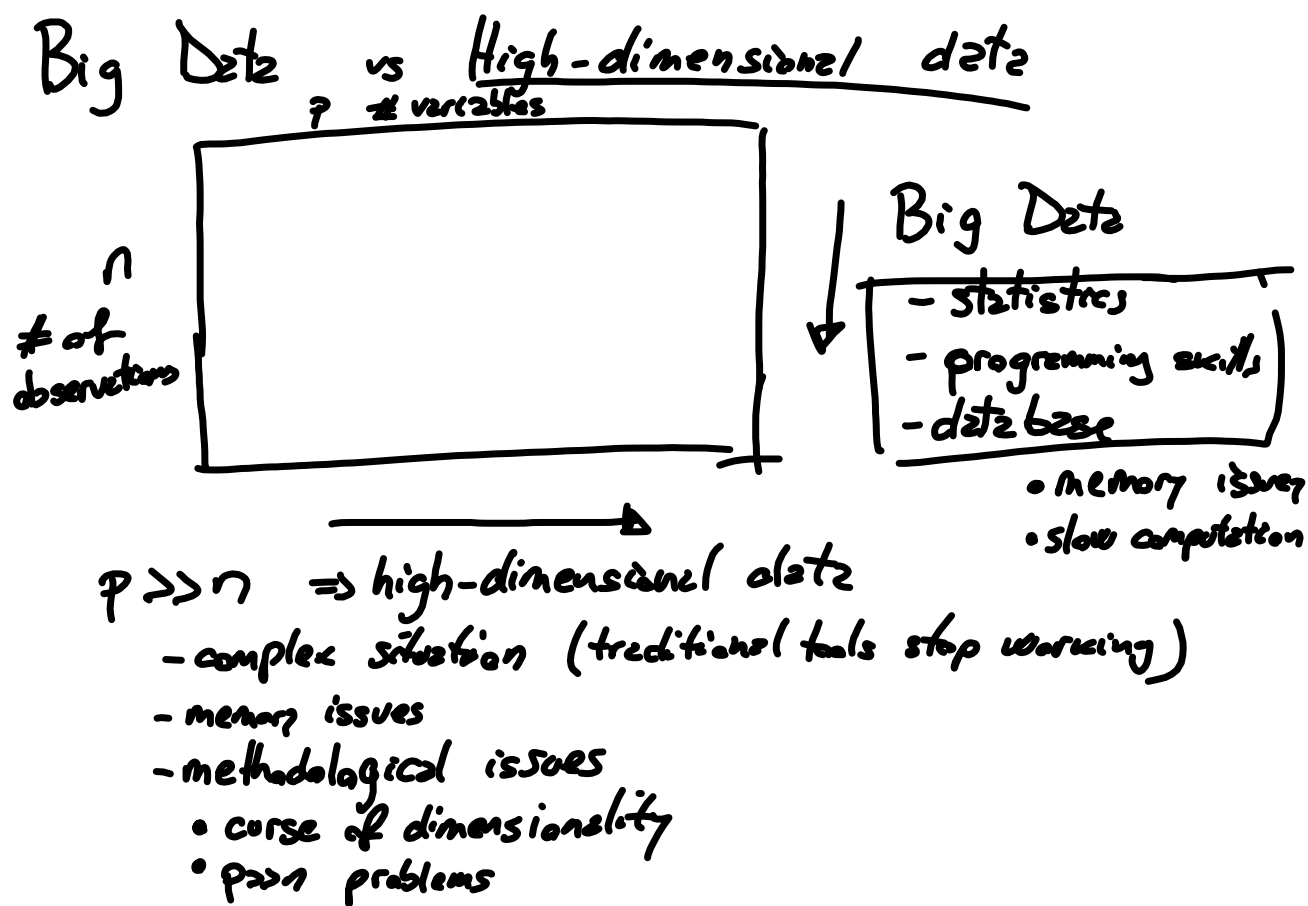 Big Data vs High-dimensional data
p # variables
n
# of
observations
Big Data
- statistics
- programming skills
- database
• memory issues
• slow computation
p >> n => high-dimensional data
- complex situation (traditional tools stop working)
- memory issues
- methodological issues
• curse of dimensionality
• p>>n problems